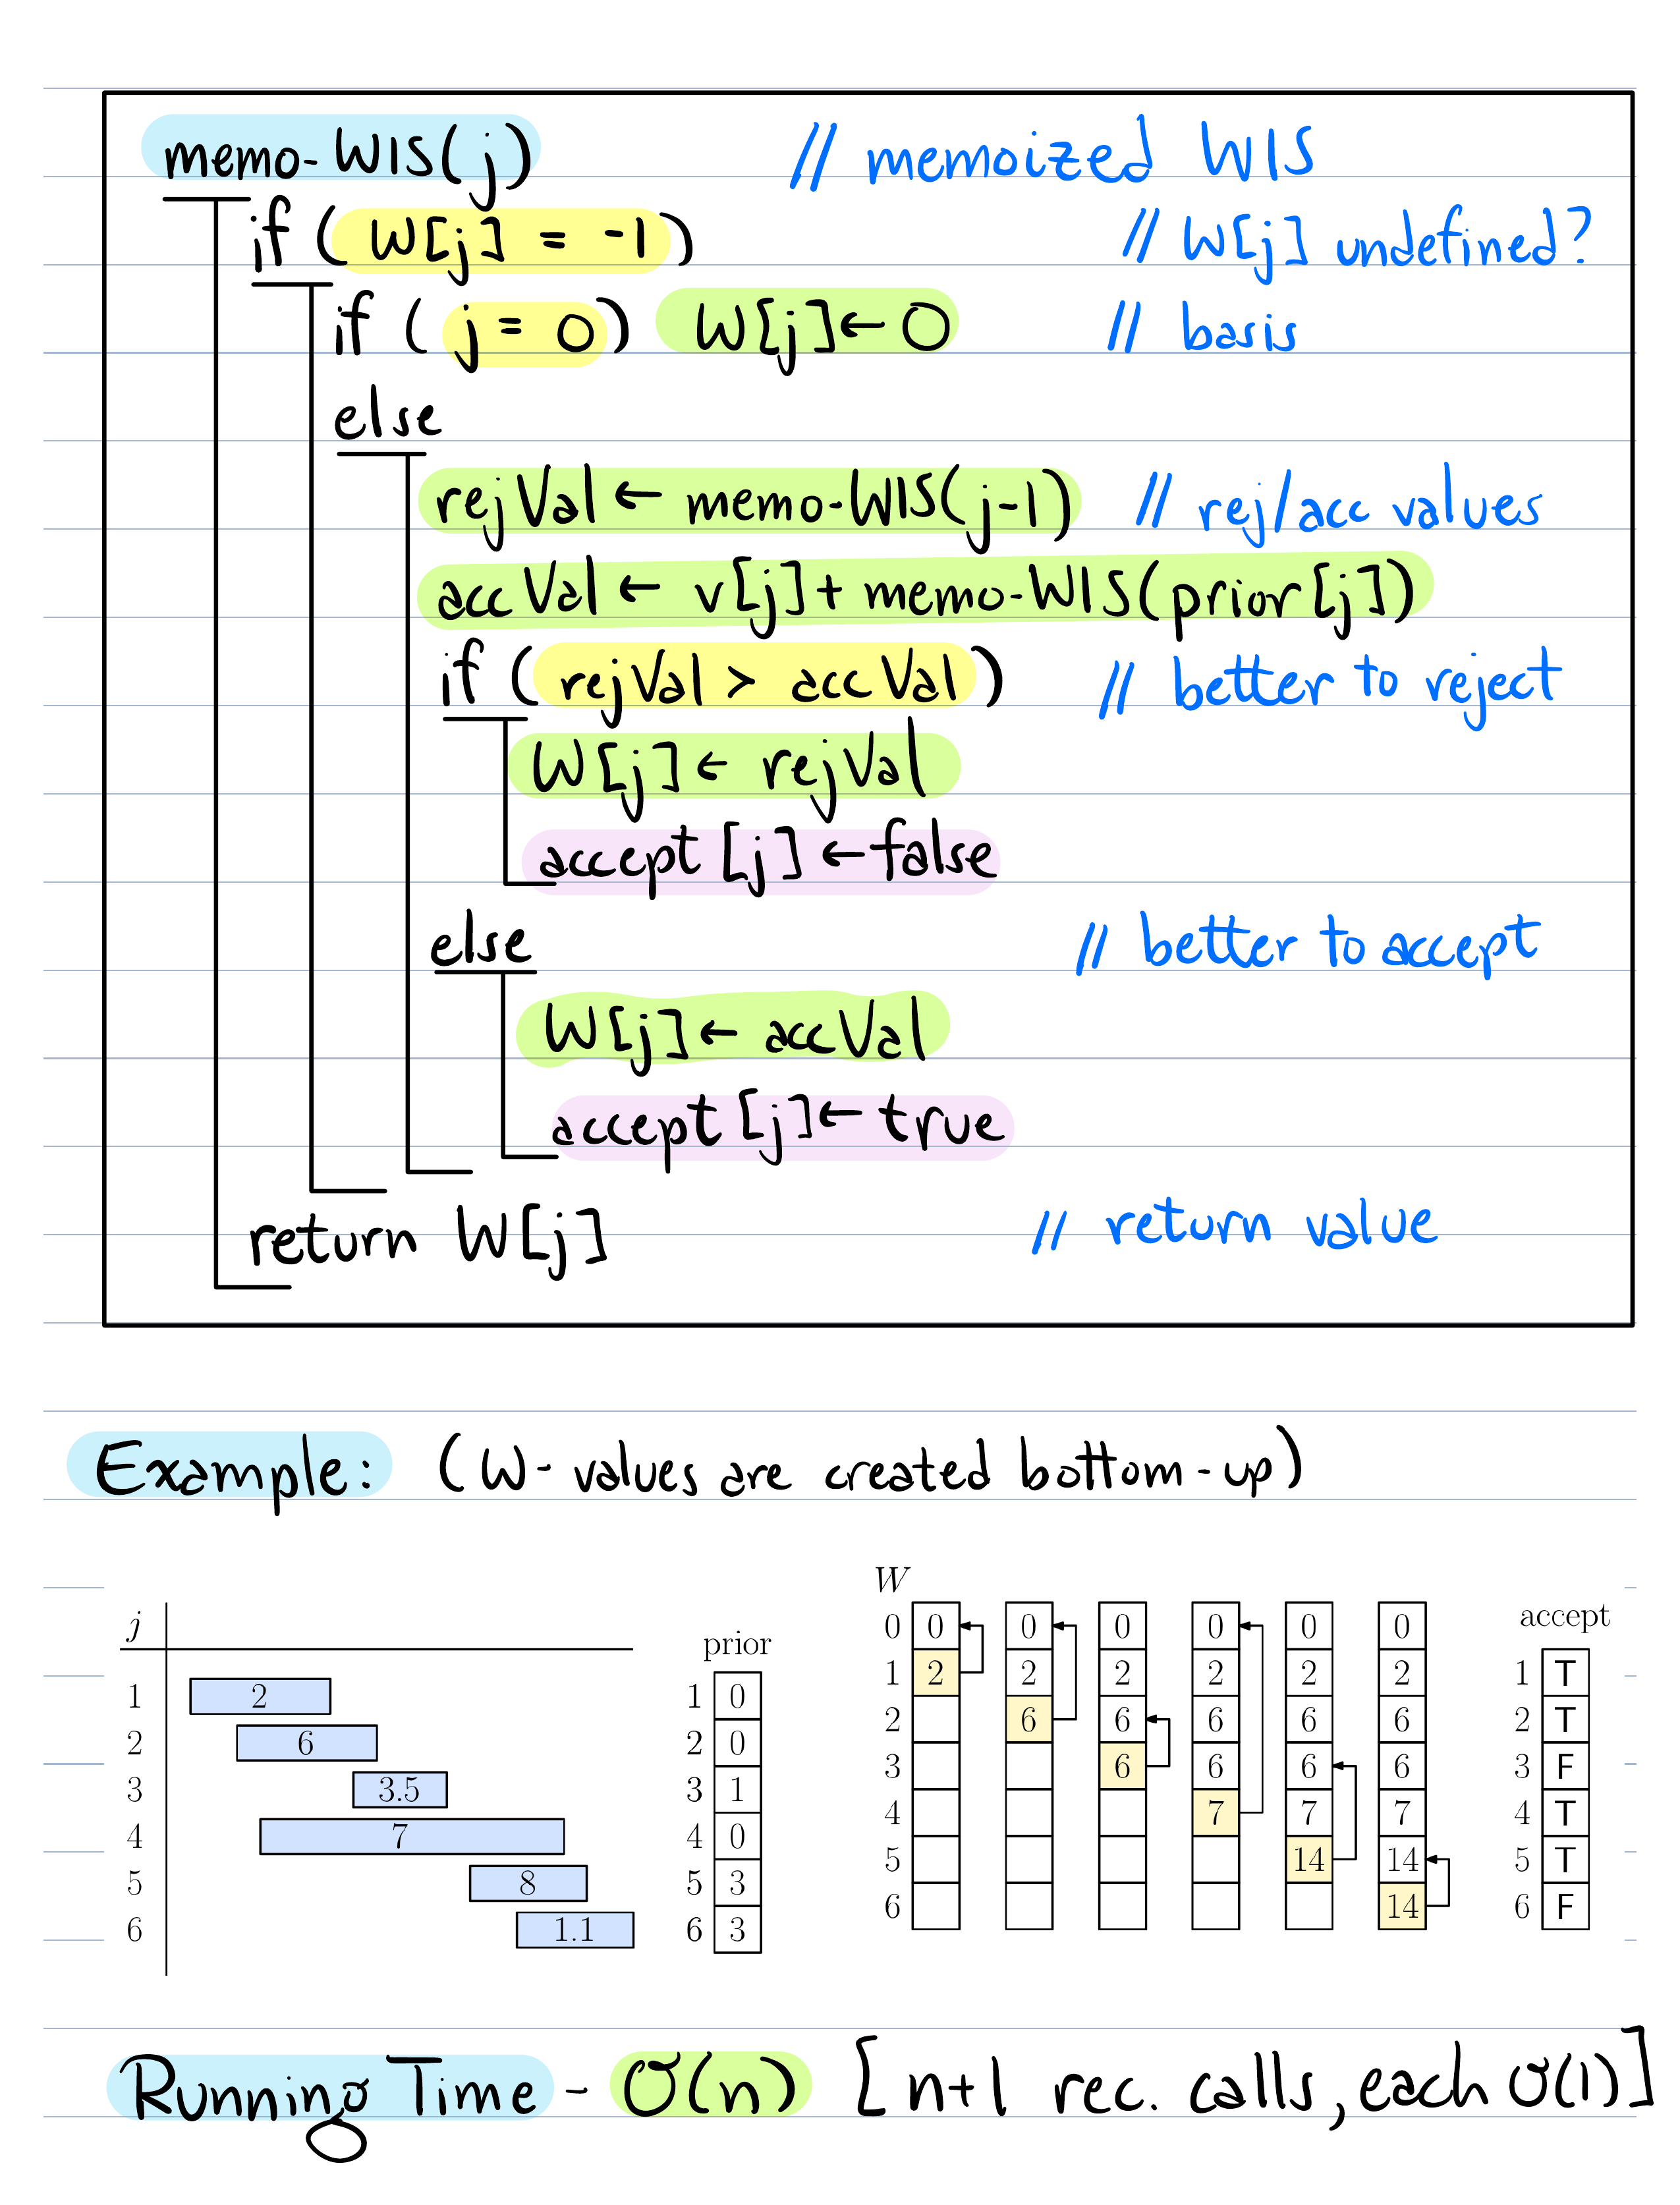 memo-WIS(j) // memoized WIS
if (W[j] = -1) // W[j] undefined?
if (j = 0) W[j] ← 0 // basis
else
rejVal ← memo-WIS(j-1) // rej/acc values
accVal ← v[j] + memo-WIS(prior[j])
if (rejVal > accVal) // better to reject
W[j] ← rejVal
accept[j] ← false
else // better to accept
W[j] ← accVal
accept[j] ← true
return W[j] // return value
Example: (W-values are created bottom-up)
j
1 2
2 6
3 3.5
4 7
5 8
6 1.1
prior
1 0
2 0
3 1
4 0
5 3
6 3
W
0 0 0 0 0 0 0
1 2 2 2 2 2 2
2 6 6 6 6 6
3 6 6 6 6
4 7 7 7
5 14 14
6 14
accept
1 T
2 T
3 F
4 T
5 T
6 F
Running Time - O(n) [n+1 rec. calls, each O(1)]